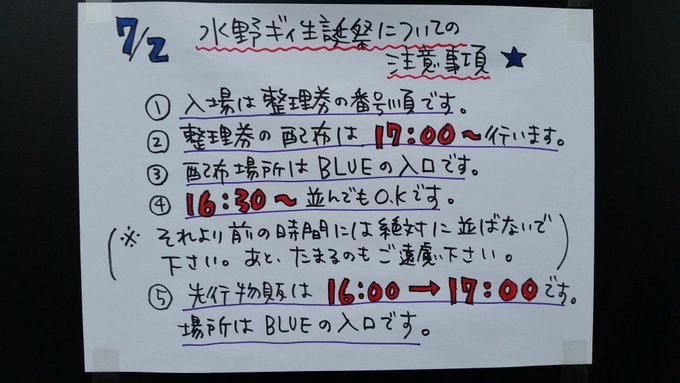 7/2 水野ギィ生誕祭についての
注意事項 ★
① 入場は整理券の番号順です。
② 整理券の配布は 17:00～行います。
③ 配布場所はBLUEの入口です。
④ 16:30～並んでもO.Kです。
(※ それより前の時間には絶対に並ばないで
下さい。あと、たまるのもご遠慮下さい。)
⑤ 先行物販は 16:00→17:00です。
場所はBLUEの入口です。